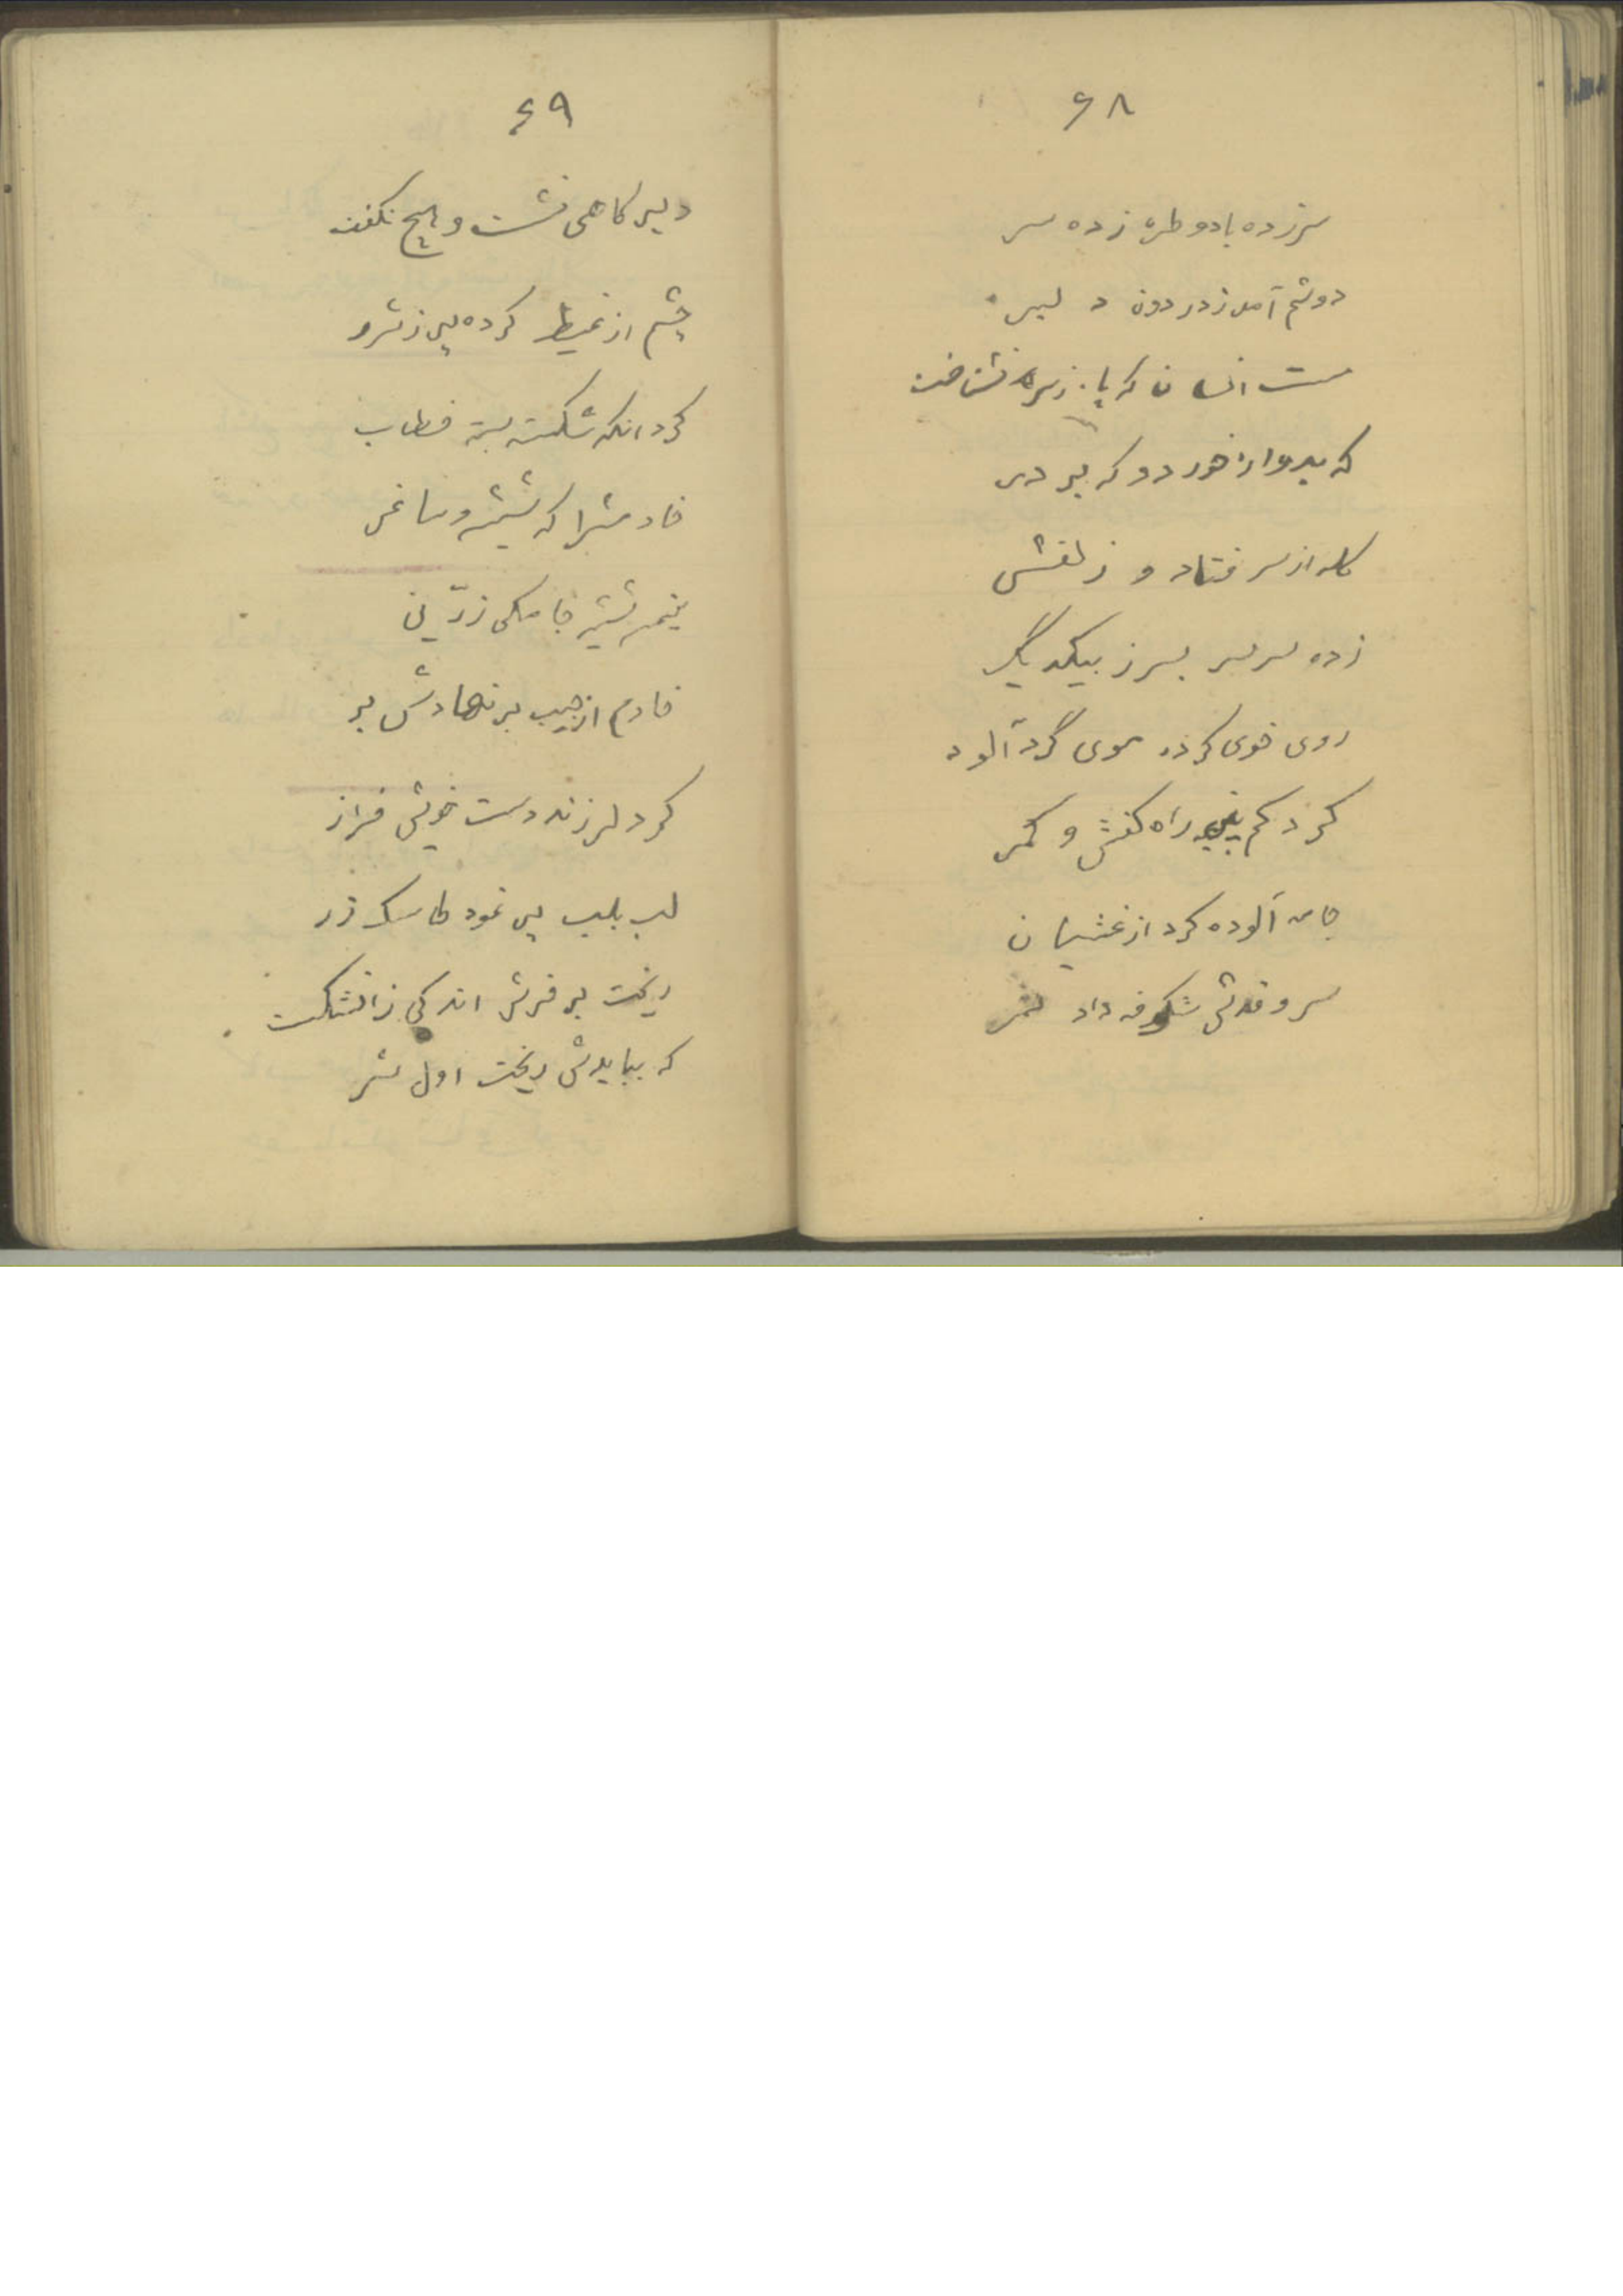 ۶۸
سرزده با دو طره زده سر
دوشم آمد ز در درون دلبر
مست انسان که پا ز سر نشناخت
که بدیوار خورد و که بر در
کله از سر فتاد و زلفش
زده سر بسر ز یکدیگر
روی خوی کرده موی گرد آلود
کرد گم بین راه کفش و کمر
جامه آلوده کرد از غشیان
سرو قدش شکوفه داد
۶۹
دیر گاهی نشست و هیچ نگفت
چشم از غیظ کرده پر ز شرر
کرد انگه شکسته بسته خطاب
خادمش را که شیشه و ساغر
نیمه شیشه جامکی زرین
خادم از جیب بر نهادش بر
کرد لرزنده دست خویش فراز
لب بلب پر نمود طاسک زر
ریخت بر فرش اندکی زانشکست
که ببایدش ریخت اول شر